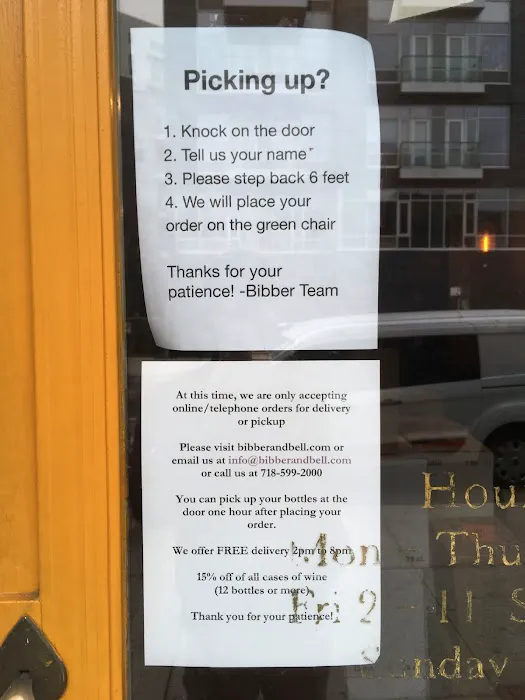 Picking up?
1. Knock on the door
2. Tell us your name
3. Please step back 6 feet
4. We will place your
order on the green chair
Thanks for your
patience! -Bibber Team
At this time, we are only accepting
online/telephone orders for delivery
or pickup
Please visit bibberandbell.com or
email us at info@bibberandbell.com
or call us at 718-599-2000
You can pick up your bottles at the
door one hour after placing your
order.
We offer FREE delivery 2pm to 8pm
15% off of all cases of wine
(12 bottles or more)
Thank you for your patience!
Hou
Mon - Thu
Fri 2 - 11 S
Sunday